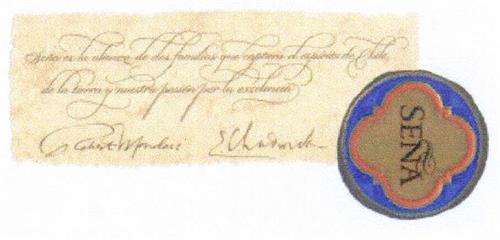 Seña es la alianza de dos familias que captura el espíritu de Chile,
de la tierra y nuestra pasión por la excelencia
Robert Mondavi EChadwick
SEÑA